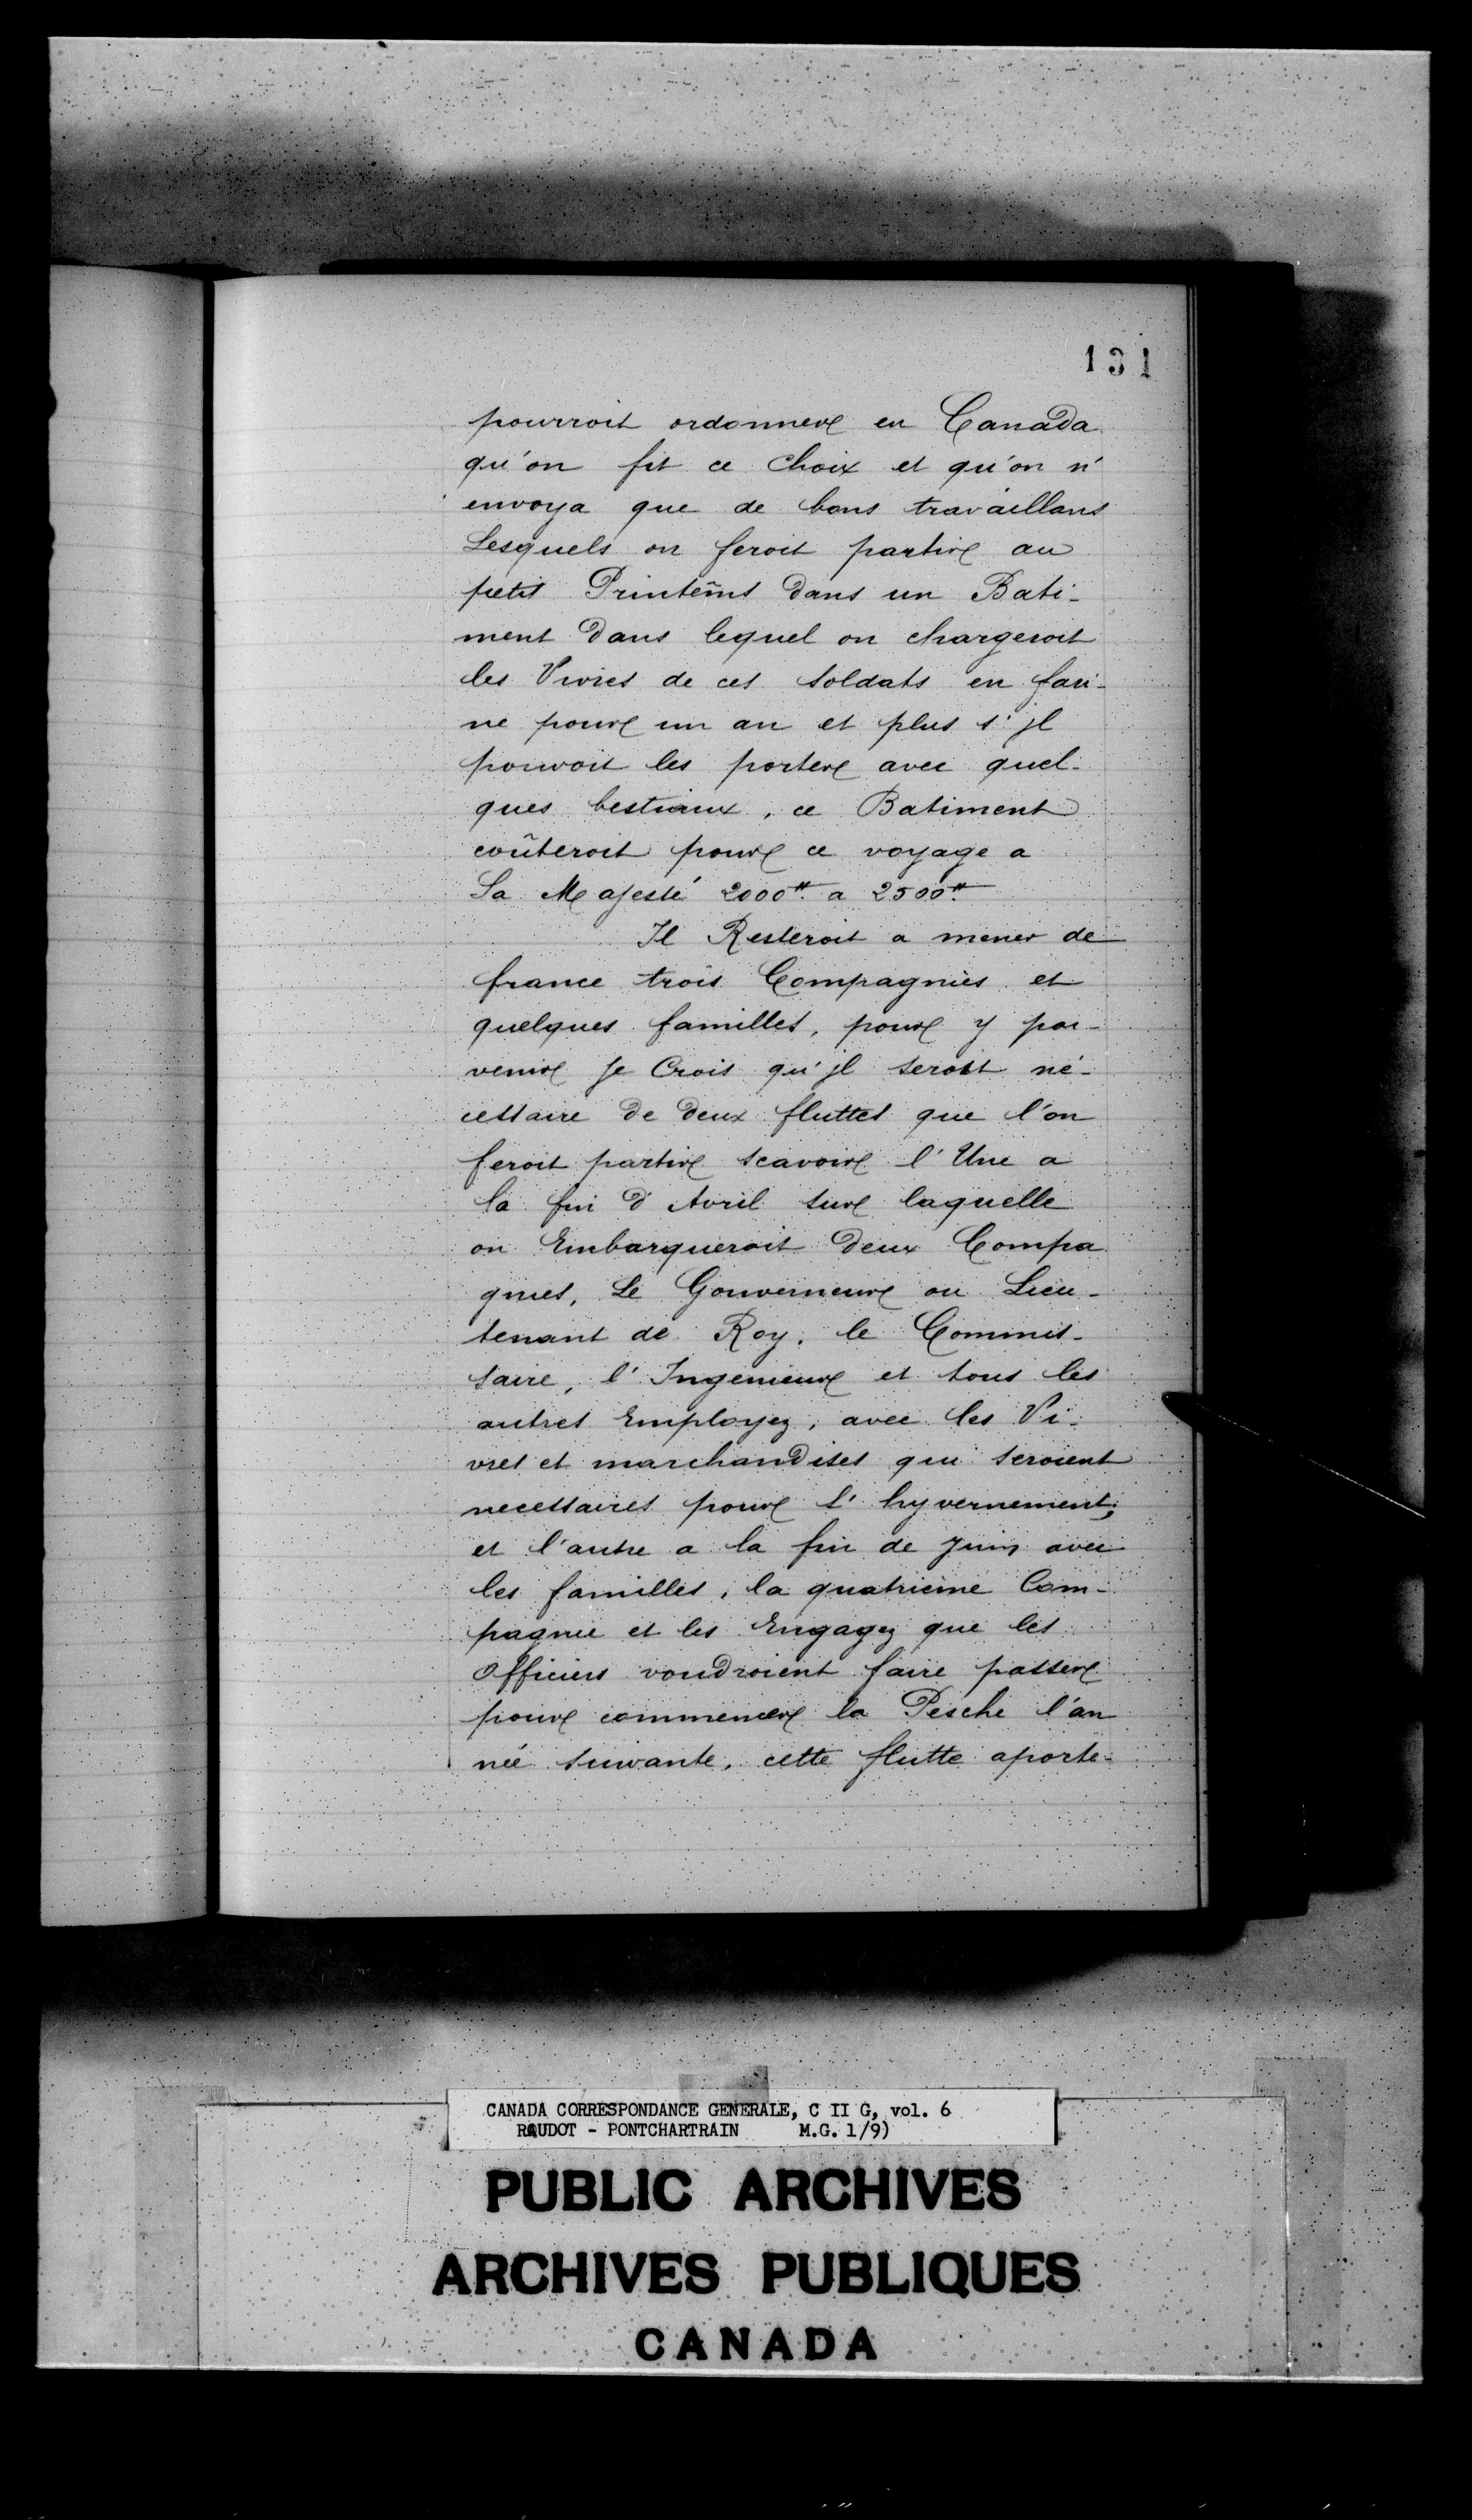 131
pourroit ordonner en Canada
qu'on fit ce Choix et qu'on n'
envoya que de bons travaillans
Lesquels on feroit partir au
petit Printems dans un Bati-
ment dans lequel on chargeroit
les Vivres de ces soldats en fari-
ne pour un an et plus s'jl
pouvoit les porter avec quel-
ques bestiaux, ce Batiment
coûteroit pour ce voyage a
Sa Majesté 2000tt a 2500tt
Il Resteroit a mener de
france trois Compagnies et
quelques familles, pour y par-
venir Je Crois qu'jl seroit né-
cessaire de deux fluttes que l'on
feroit partir scavoir l'Une a
la fin d'Avril sur laquelle
on Embarqueroit deux Compa
gnies, Le Gouverneur ou Lieu-
tenant de Roy, le Commis-
saire, l'Ingenieur et tous les
autres Employez, avec les Vi-
vres et marchandises qui seroient
necessaires pour l'hyvernement;
et l'autre a la fin de Juin avec
les familles, la quatrieme Com-
pagnie et les Engagez que les
Officiers voudroient faire passer
pour commencer la Pesche l'an
née suivante, cette flutte aporte-
CANADA CORRESPONDANCE GENERALE, C II G, vol. 6
RAUDOT - PONTCHARTRAIN M.G. 1/9)
PUBLIC ARCHIVES
ARCHIVES PUBLIQUES
CANADA